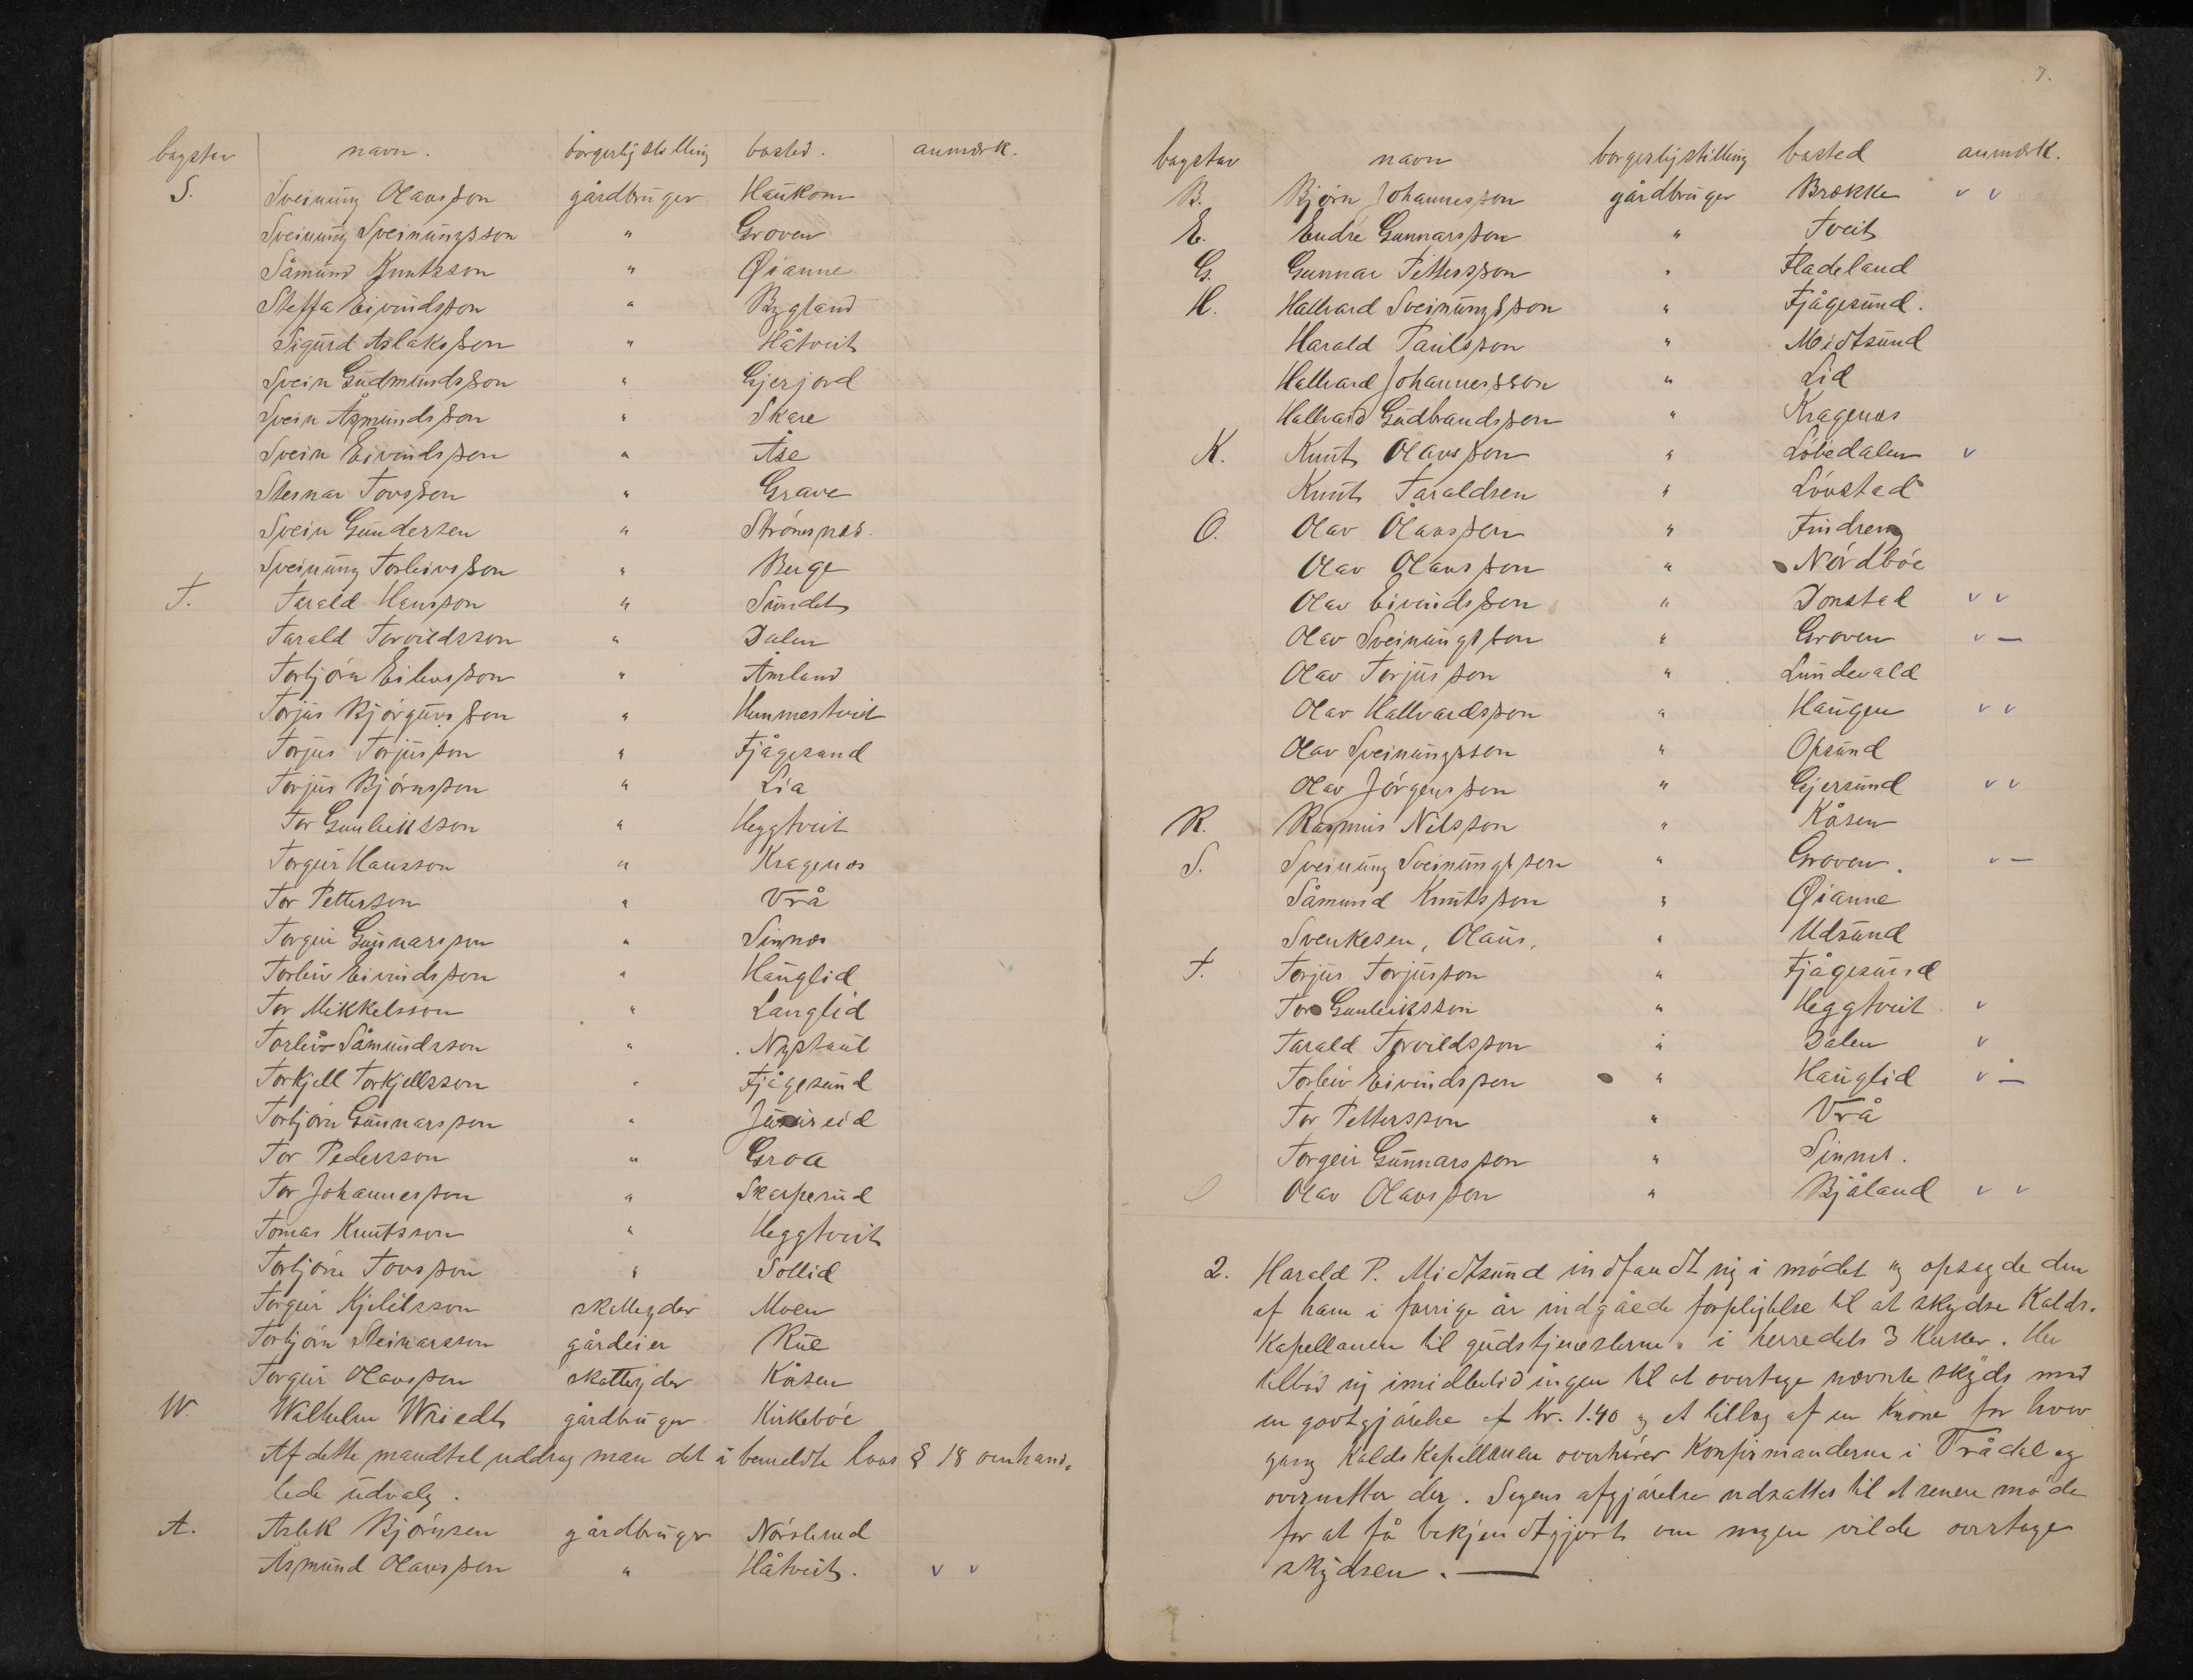 bogstav navn. borgerlig stilling bosted. anmærk.
S. Sveinung Olavsson gårdbruger Haukom
Sveinung Sveinungsson " Groven
Såmund Knutsson " Øianne
Steffa Eivindsson " Bygland
Sigurd Aslaksson " Håtveit
Svein Gudmundsson " Gjerjord
Svein Åsmundsson " Skare
Svein Eivindsson " Åse
Steinar Tovsson " Grave
Svein Gundersen " Strönesnes.
Sveinung Torleivsson " Berge
T. Tarald Hansson " Sundet
Tarald Torvildsson " Dalen
Torbjörn Eilevsson " Åmland
Torjus Björguvsson " Hemmestveit
Torjus Torjusson " Fjågesund
Torjus Björnsson " Lia
Tor Gunleiksson " Heggtveit
Torgeir Hansson " Kragenæs
Tor Petterson " Vrå
Torgeir Gunnarsson " Sinnæs
Torleiv Eivindsson " Hauglid
Tor Mikkelsson " Langlid
Torleiv Såmundsson " Nystaul
Torkjell Torkjellsson " Fjågesund
Torbjörn Gunnarsson "
Tor Pedersson " Groa
Tor Johannesson " Skarperud
Tomas Knutsson " Heggtveit
Torbjörn Tovsson " Sollid
Torgeir Kjetilsson skatteyder Moen
Torbjörn Steinarsson gårdeier Rue
Torgeir Olavsson skatteyder Kåsen
W. Wilhelm Wriedt gårdbruger Kirkeböe
Af dette mandtal uddrog man det i bemeldte lovs § 18 omhand-
lede udvalg.
A. Aslak Björnsen gårdbruger Nörslund
Åsmund Olavsson " Håtveit. v v
7.
bogstav navn borgerlig stilling bosted anmærk.
B. Bjørn Johannesson gårdbruger Brække v v
E. Endre Gunnarsson " Tveit
G. Gunnar Pettersson " Fladeland
H. Hallvard Sveinungsson " Fjågesund.
Harald Paulsson " Midtsund
Hallvard Johannesson " Lid
Hallvard Gudbrandsson " Kragenæs
K. Knut Olavsson " Löbedalen v
Knut Taraldsen " Lövstad
O. Olav Olavsson " Findreng
Olav Olavsson " Nordböe
Olav Eivindsson " Donstad v v
Olav Sveinungsson " Groven v —
Olav Torjusson " Lundevald
Olav Hallvardsson " Haugen v v
Olav Sveinungsson " Opsund
Olav Jörgensson " Gjersund v v
R. Rasmus Nilsson " Kåsen
S. Sveinung Sveinungsson " Groven. v —
Såmund Knutsson " Øianne
Svenkesen, Olaus, " Udsund
T. Torjus Torjusson " Fjågesund
Tor Gunleiksson " Heggtveit v
Tarald Torvildsson " Dalen v
Torleiv Eivindsson " Hauglid v —
Tor Pettersson " Vrå
Torgeir Gunnarsson " Sinnes.
O Olav Olavsson " Bjåland v v
2. Harald P. Midtsund indfandt sig i mödet og opsagde den
af ham i forrige år indgåede forpligtelse til at skydse Kalds-
Kapellanen til gudstjenesterne i herredets 3 Kirker. Han
tilböd sig imidlertid ingen til at overtage nævnte skyds mod
en godtgjörelse af Kr. 1.40 og et tillæg af en Krone for hver
gang KaldsKapellanen overhörer Konfirmanderne i Trådal og
overnatter der. Sagens afgjörelse udsattes til et senere möde
for at få bekjendtgjort om nogen vilde overtage
skydsen. —